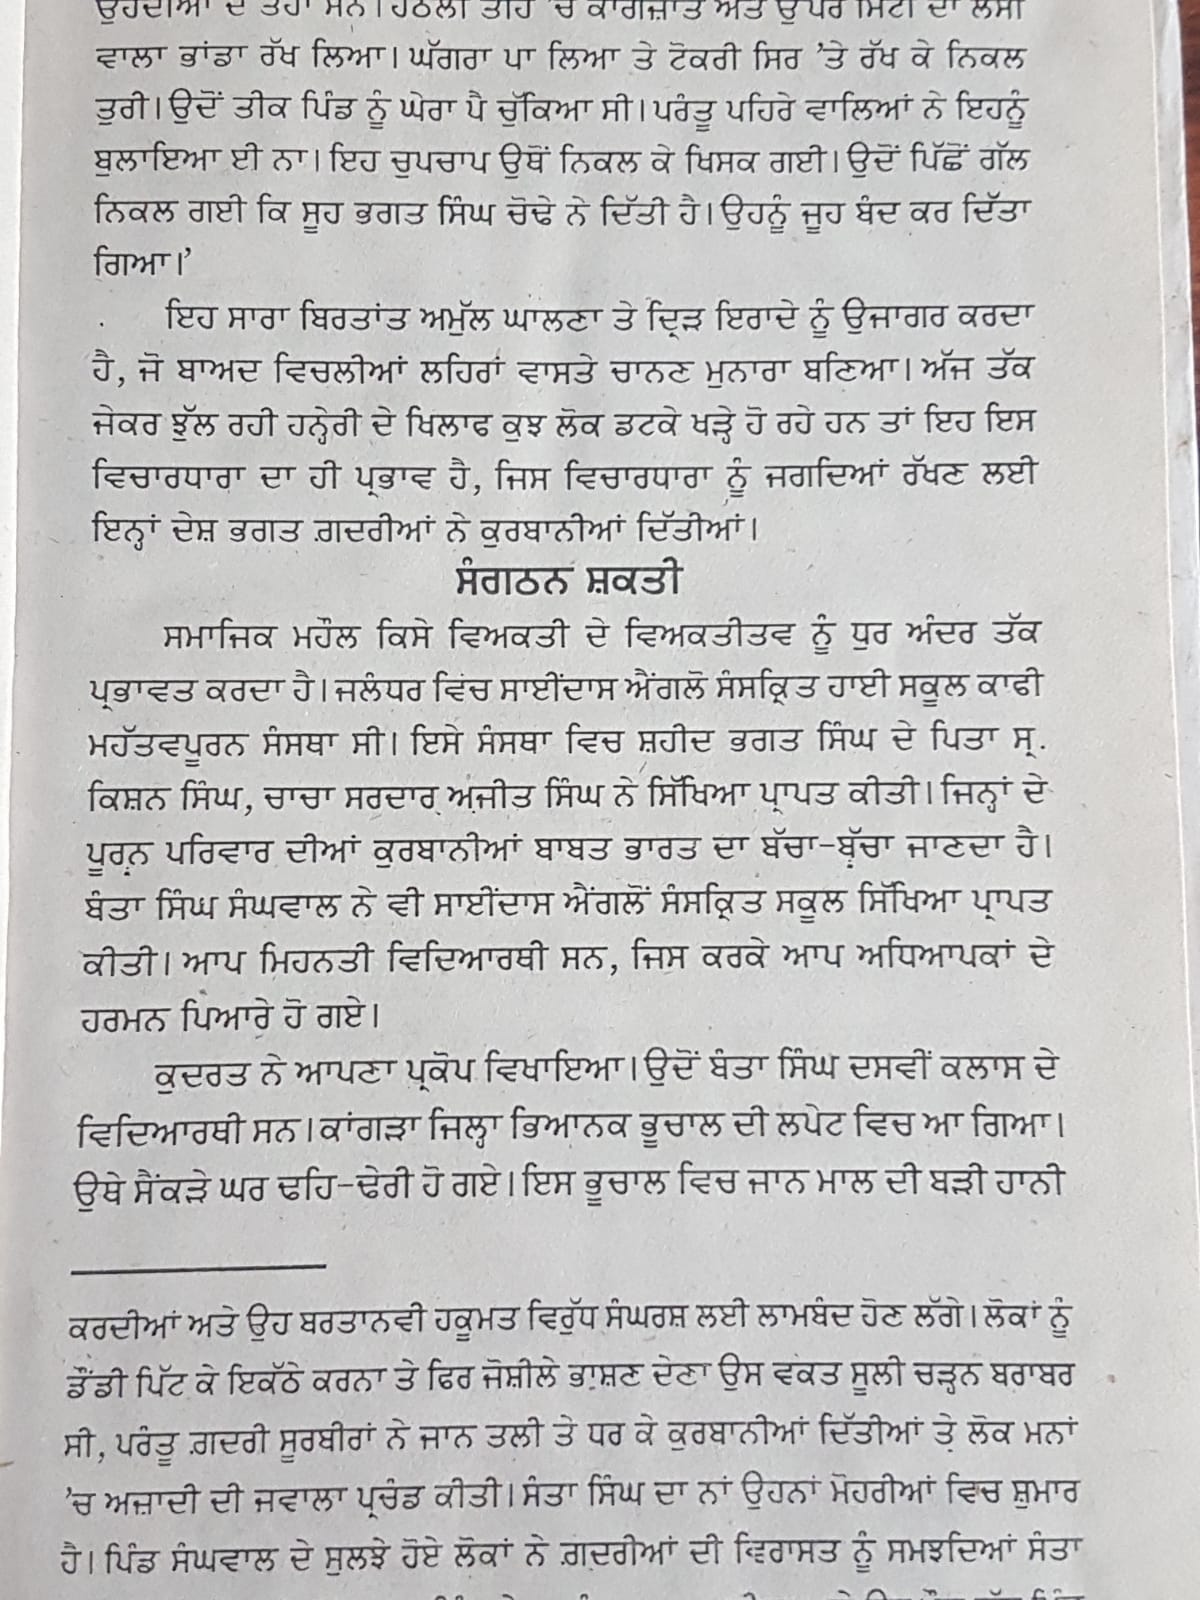 ਵਾਲਾ ਭਾਂਡਾ ਰੱਖ ਲਿਆ। ਘੱਗਰਾ ਪਾ ਲਿਆ ਤੇ ਟੋਕਰੀ ਸਿਰ ’ਤੇ ਰੱਖ ਕੇ ਨਿਕਲ
ਤੁਰੀ। ਉਦੋਂ ਤੀਕ ਪਿੰਡ ਨੂੰ ਘੇਰਾ ਪੈ ਚੁੱਕਿਆ ਸੀ। ਪਰੰਤੂ ਪਹਿਰੇ ਵਾਲਿਆਂ ਨੇ ਇਹਨੂੰ
ਬੁਲਾਇਆ ਈ ਨਾ। ਇਹ ਚੁਪਚਾਪ ਉਥੋਂ ਨਿਕਲ ਕੇ ਖਿਸਕ ਗਈ। ਉਦੋਂ ਪਿੱਛੋਂ ਗੱਲ
ਨਿਕਲ ਗਈ ਕਿ ਸੂਹ ਭਗਤ ਸਿੰਘ ਚੋਢੇ ਨੇ ਦਿੱਤੀ ਹੈ। ਉਹਨੂੰ ਜੂਹ ਬੰਦ ਕਰ ਦਿੱਤਾ
ਗਿਆ।’
ਇਹ ਸਾਰਾ ਬਿਰਤਾਂਤ ਅਮੁੱਲ ਘਾਲਣਾ ਤੇ ਦ੍ਰਿੜ ਇਰਾਦੇ ਨੂੰ ਉਜਾਗਰ ਕਰਦਾ
ਹੈ, ਜੋ ਬਾਅਦ ਵਿਚਲੀਆਂ ਲਹਿਰਾਂ ਵਾਸਤੇ ਚਾਨਣ ਮੁਨਾਰਾ ਬਣਿਆ। ਅੱਜ ਤੱਕ
ਜੇਕਰ ਝੁੱਲ ਰਹੀ ਹਨ੍ਹੇਰੀ ਦੇ ਖਿਲਾਫ ਕੁਝ ਲੋਕ ਡਟਕੇ ਖੜ੍ਹੇ ਹੋ ਰਹੇ ਹਨ ਤਾਂ ਇਹ ਇਸ
ਵਿਚਾਰਧਾਰਾ ਦਾ ਹੀ ਪ੍ਰਭਾਵ ਹੈ, ਜਿਸ ਵਿਚਾਰਧਾਰਾ ਨੂੰ ਜਗਦਿਆਂ ਰੱਖਣ ਲਈ
ਇਨ੍ਹਾਂ ਦੇਸ਼ ਭਗਤ ਗ਼ਦਰੀਆਂ ਨੇ ਕੁਰਬਾਨੀਆਂ ਦਿੱਤੀਆਂ।
ਸੰਗਠਨ ਸ਼ਕਤੀ
ਸਮਾਜਿਕ ਮਹੌਲ ਕਿਸੇ ਵਿਅਕਤੀ ਦੇ ਵਿਅਕਤੀਤਵ ਨੂੰ ਧੁਰ ਅੰਦਰ ਤੱਕ
ਪ੍ਰਭਾਵਤ ਕਰਦਾ ਹੈ। ਜਲੰਧਰ ਵਿਚ ਸਾਈਂਦਾਸ ਐਂਗਲੋ ਸੰਸਕ੍ਰਿਤ ਹਾਈ ਸਕੂਲ ਕਾਫੀ
ਮਹੱਤਵਪੂਰਨ ਸੰਸਥਾ ਸੀ। ਇਸੇ ਸੰਸਥਾ ਵਿਚ ਸ਼ਹੀਦ ਭਗਤ ਸਿੰਘ ਦੇ ਪਿਤਾ ਸ੍ਰ.
ਕਿਸ਼ਨ ਸਿੰਘ, ਚਾਚਾ ਸਰਦਾਰ ਅਜੀਤ ਸਿੰਘ ਨੇ ਸਿੱਖਿਆ ਪ੍ਰਾਪਤ ਕੀਤੀ। ਜਿਨ੍ਹਾਂ ਦੇ
ਪੂਰਨ ਪਰਿਵਾਰ ਦੀਆਂ ਕੁਰਬਾਨੀਆਂ ਬਾਬਤ ਭਾਰਤ ਦਾ ਬੱਚਾ-ਬੱਚਾ ਜਾਣਦਾ ਹੈ।
ਬੰਤਾ ਸਿੰਘ ਸੰਘਵਾਲ ਨੇ ਵੀ ਸਾਈਂਦਾਸ ਐਂਗਲੋਂ ਸੰਸਕ੍ਰਿਤ ਸਕੂਲ ਸਿੱਖਿਆ ਪ੍ਰਾਪਤ
ਕੀਤੀ। ਆਪ ਮਿਹਨਤੀ ਵਿਦਿਆਰਥੀ ਸਨ, ਜਿਸ ਕਰਕੇ ਆਪ ਅਧਿਆਪਕਾਂ ਦੇ
ਹਰਮਨ ਪਿਆਰੇ ਹੋ ਗਏ।
ਕੁਦਰਤ ਨੇ ਆਪਣਾ ਪ੍ਰਕੋਪ ਵਿਖਾਇਆ। ਉਦੋਂ ਬੰਤਾ ਸਿੰਘ ਦਸਵੀਂ ਕਲਾਸ ਦੇ
ਵਿਦਿਆਰਥੀ ਸਨ। ਕਾਂਗੜਾ ਜਿਲ੍ਹਾ ਭਿਆਨਕ ਭੂਚਾਲ ਦੀ ਲਪੇਟ ਵਿਚ ਆ ਗਿਆ।
ਉਥੇ ਸੈਂਕੜੇ ਘਰ ਢਹਿ-ਢੇਰੀ ਹੋ ਗਏ। ਇਸ ਭੂਚਾਲ ਵਿਚ ਜਾਨ ਮਾਲ ਦੀ ਬੜੀ ਹਾਨੀ
ਕਰਦੀਆਂ ਅਤੇ ਉਹ ਬਰਤਾਨਵੀ ਹਕੂਮਤ ਵਿਰੁੱਧ ਸੰਘਰਸ਼ ਲਈ ਲਾਮਬੰਦ ਹੋਣ ਲੱਗੇ। ਲੋਕਾਂ ਨੂੰ
ਡੌਂਡੀ ਪਿੱਟ ਕੇ ਇਕੱਠੇ ਕਰਨਾ ਤੇ ਫਿਰ ਜੋਸ਼ੀਲੇ ਭਾਸ਼ਣ ਦੇਣਾ ਉਸ ਵਕਤ ਸੂਲੀ ਚੜ੍ਹਨ ਬਰਾਬਰ
ਸੀ, ਪਰੰਤੂ ਗ਼ਦਰੀ ਸੂਰਬੀਰਾਂ ਨੇ ਜਾਨ ਤਲੀ ਤੇ ਧਰ ਕੇ ਕੁਰਬਾਨੀਆਂ ਦਿੱਤੀਆਂ ਤੇ ਲੋਕ ਮਨਾਂ
’ਚ ਅਜ਼ਾਦੀ ਦੀ ਜਵਾਲਾ ਪ੍ਰਚੰਡ ਕੀਤੀ। ਸੰਤਾ ਸਿੰਘ ਦਾ ਨਾਂ ਉਹਨਾਂ ਮੋਹਰੀਆਂ ਵਿਚ ਸ਼ੁਮਾਰ
ਹੈ। ਪਿੰਡ ਸੰਘਵਾਲ ਦੇ ਸੁਲਝੇ ਹੋਏ ਲੋਕਾਂ ਨੇ ਗ਼ਦਰੀਆਂ ਦੀ ਵਿਰਾਸਤ ਨੂੰ ਸਮਝਦਿਆਂ ਸੰਤਾ